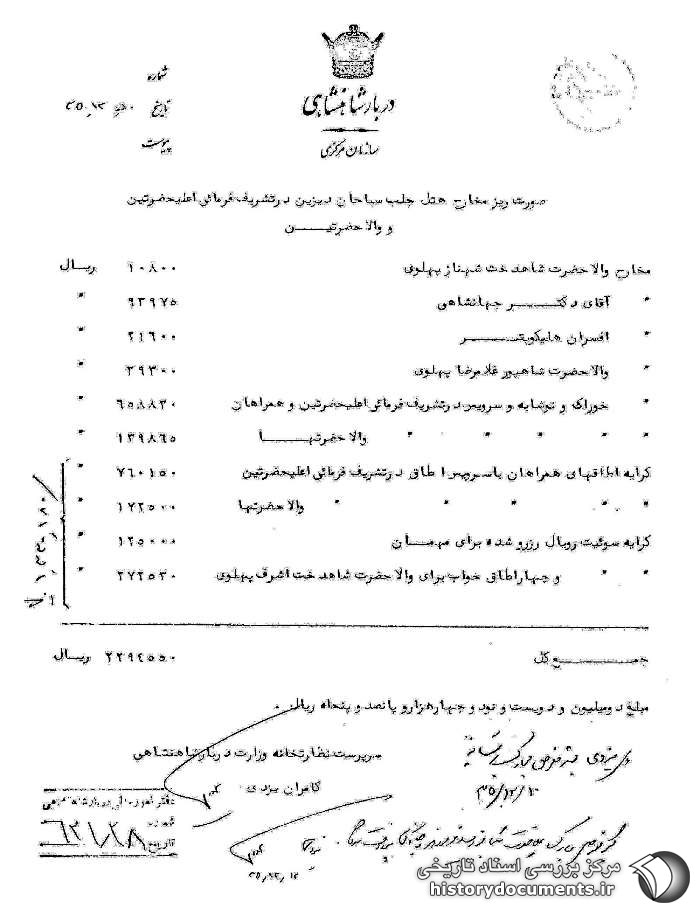 شماره
تاریخ
پیوست
دربار شاهنشاهی
سازمان مرکزی
صورت ریز مخارج هتل جلب سیاحان دیزین در تشریف فرمائی اعلیحضرتین
و والاحضرتین
مخارج والاحضرت شاهدخت شهناز پهلوی ۱۰۸۰۰ ریال
" آقای دکتر جهانشاهی ۹۳۹۷۵ "
" افسران هلیکوپتر ۲۱۶۰۰ "
" والاحضرت شاهپور غلامرضا پهلوی ۲۹۳۰۰ "
" خوراک و نوشابه و سرویس در تشریف فرمائی اعلیحضرتین و همراهان ۶۵۸۸۳۰ "
" " " " " والاحضرتها ۱۳۹۸۶۵ "
کرایه اطاقهای همراهان باسرویس اطاق در تشریف فرمائی اعلیحضرتین ۷۶۰۱۵۰ "
" " " " " والاحضرتها ۱۷۲۵۰۰ "
کرایه سوئیت رویال رزرو شده برای مهمان ۱۲۵۰۰۰ "
" " و چهار اطاق خواب برای والاحضرت شاهدخت اشرف پهلوی ۲۷۲۵۳۰ "
جمع کل ۲۲۹۴۵۵۰ ریال
مبلغ دومیلیون و دویست و نود و چهار هزار و پانصد و پنجاه ریال .
سرپرست نظارتخانه وزارت دربار شاهنشاهی
کامران یزدی
۳۵/۱۲/۱۰
شماره
تاریخ
مرکز بررسی اسناد تاریخی
historydocuments.ir